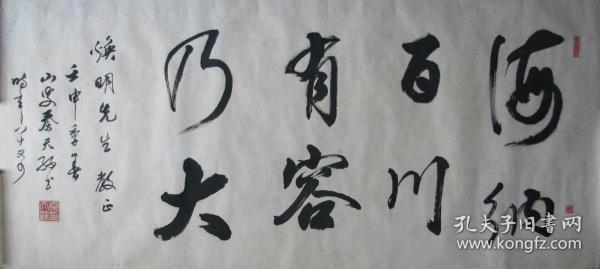 海纳
百川
有容
乃大
焕明先生教正
壬申季夏
山叟秦天孙书
时年八十又
孔夫子旧书网
www.kongfz.com